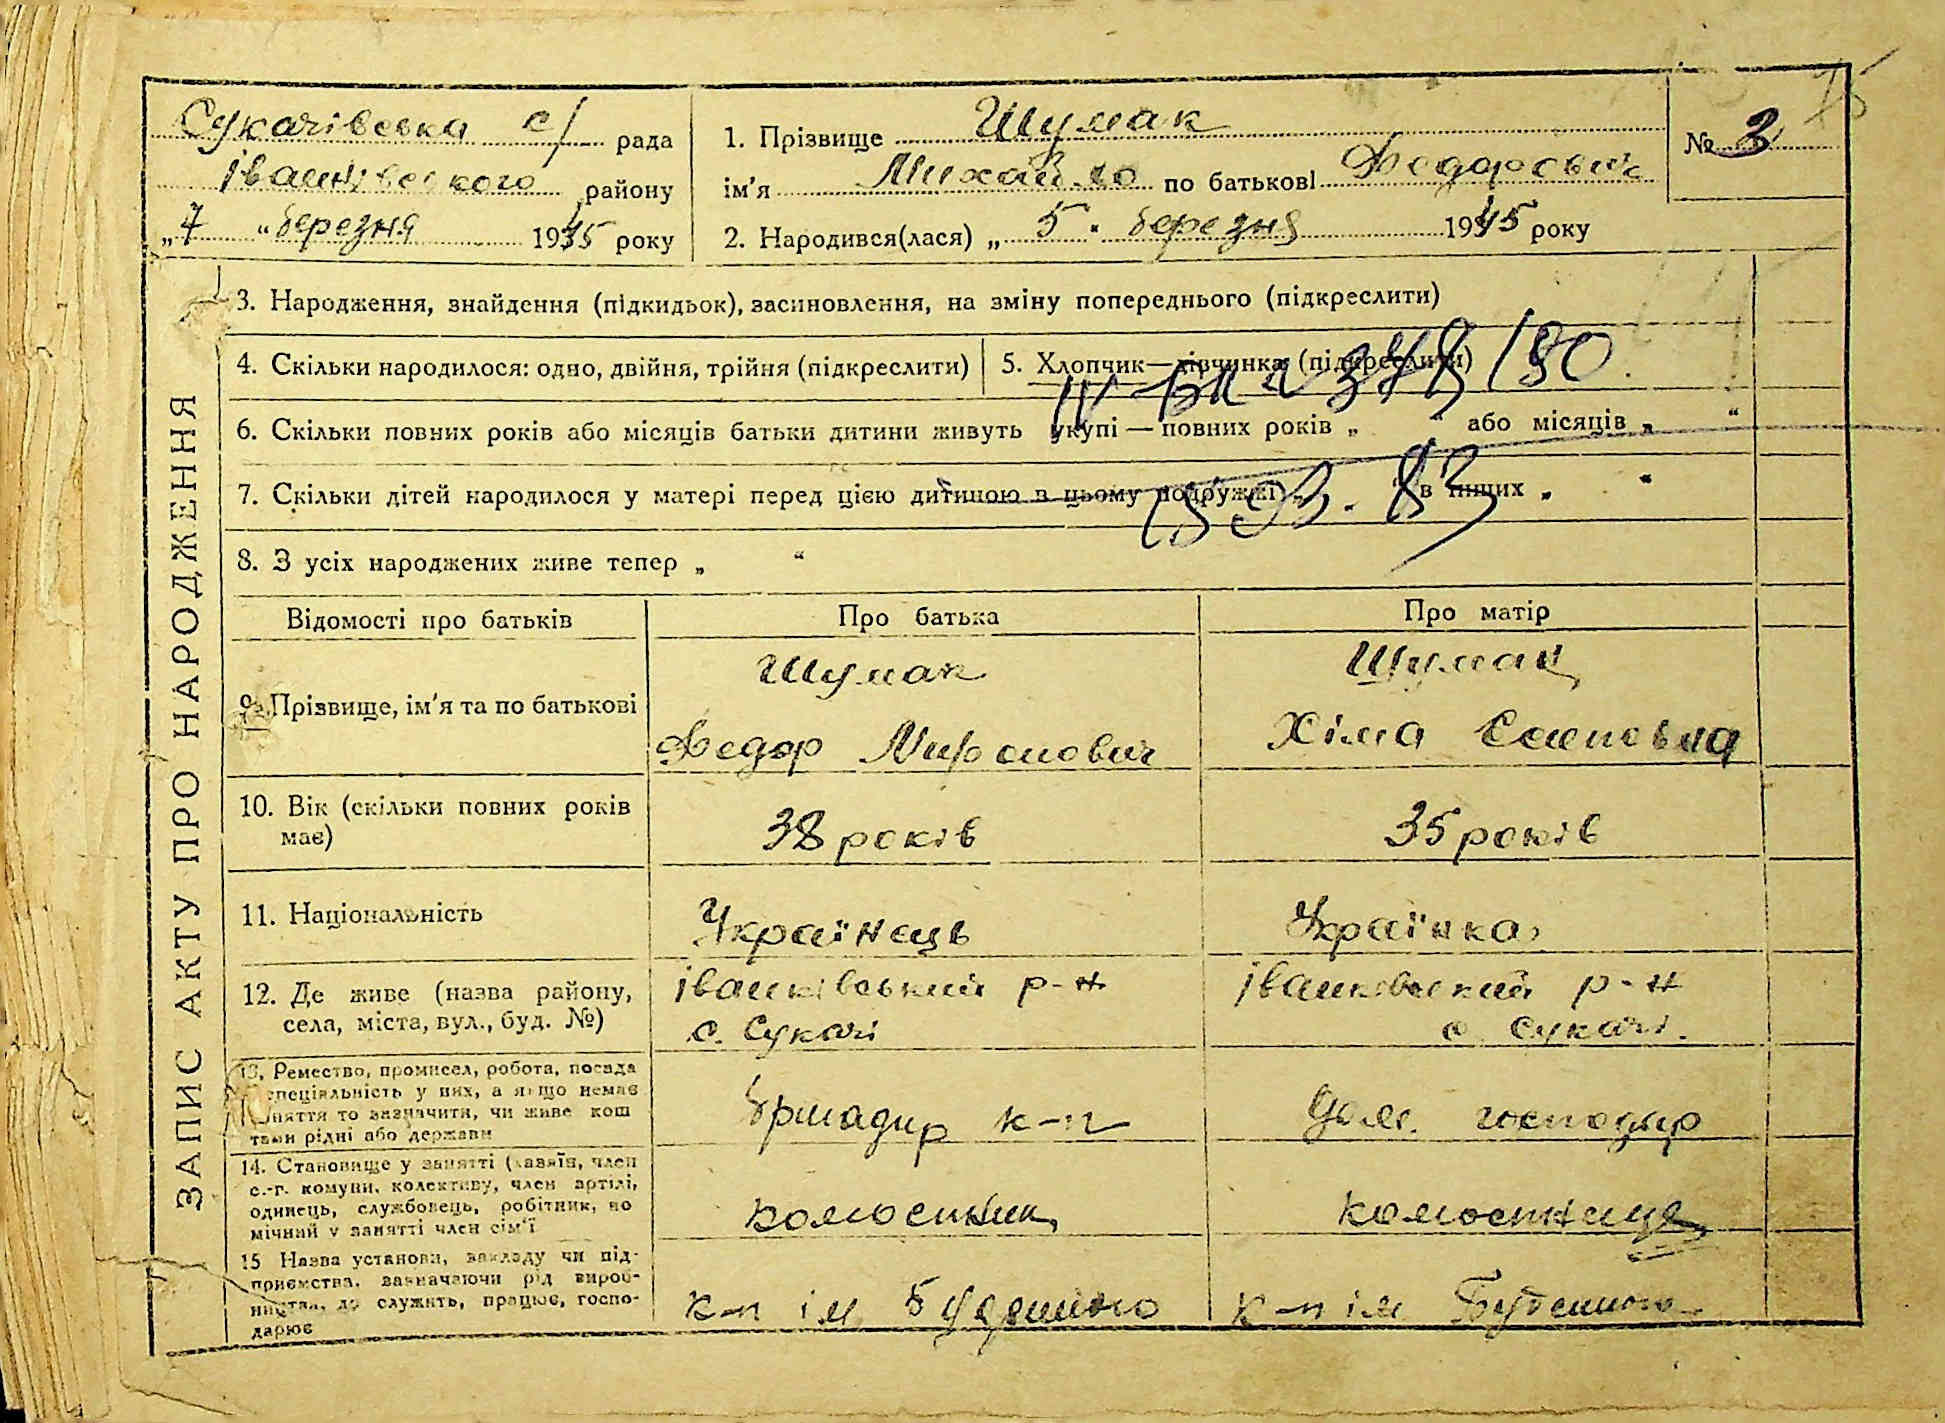 Сукачівська с/ рада
Іванківського району
„7“ березня 1945 року
1. Прізвище Шумак
ім'я Михайло по батькові Федорович
2. Народився(лася) „5“ березня 1945 року
№ 3
ЗАПИС АКТУ ПРО НАРОДЖЕННЯ
3. Народження, знайдення (підкидьок), засиновлення, на зміну попереднього (підкреслити)
4. Скільки народилося: одно, двійня, трійня (підкреслити)
5. Хлопчик—дівчинка (підкреслити)
6. Скільки повних років або місяців батьки дитини живуть укупі — повних років „ “ або місяців „ “
7. Скільки дітей народилося у матері перед цією дитиною в цьому подружжі „ “ в інших „ “
8. З усіх народжених живе тепер „ “
Відомості про батьків
Про батька
Про матір
9. Прізвище, ім'я та по батькові
Шумак
Федор Миронович
Шумак
Хіма
10. Вік (скільки повних років
має)
38 років
35 років
11. Національність
Українець
Українка
12. Де живе (назва району,
села, міста, вул., буд. №)
Іванківський р-н
с. Сукачі
Іванківский р-н
с. Сукачі.
13. Ремество, промисел, робота, посада
спеціяльність у них, а якщо немає
заняття то зазначити, чи живе кош
тами рідні або держави
Бригадир к-п
Дом. господар
14. Становище у занятті (хазяїн, член
с.-г. комуни, колективу, член артілі,
одинець, службовець, робітник, по
мічний у занятті член сім'ї
колгоспник
колгоспниця
15 Назва установи, закладу чи під-
приємства, зазначаючи рід вироб-
ництва, де служить, працює, госпо-
дарює
к-п ім Будьоного
к-п ім Буденого